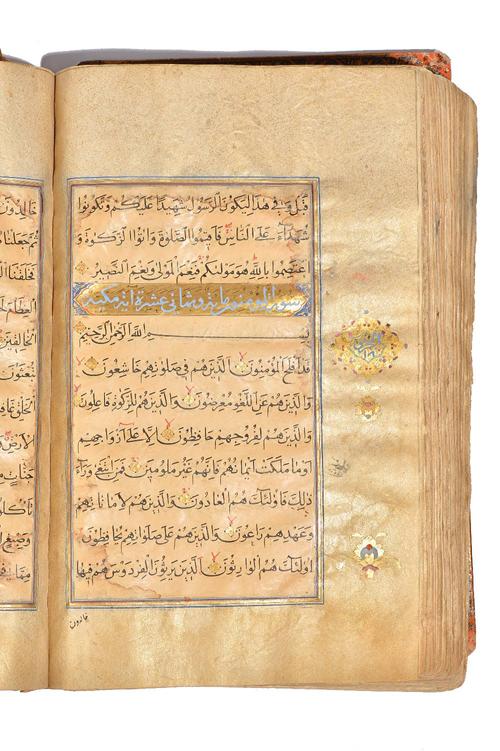 قبل وفي هذا ليكون الرسول شهيدا عليكم وتكونوا
شهداء على الناس فاقيموا الصلوة واتوا الزكوة و
اعتصموا بالله هو موليكم فنعم المولى ونعم النصير
سورة المؤمنون مائة وثماني عشرة آية مكية
بسم الله الرحمن الرحيم
قد افلح المؤمنون الذين هم في صلوتهم خاشعون
والذين هم عن اللغو معرضون والذين هم للزكوة فاعلون
والذين هم لفروجهم حافظون الا على ازواجهم
او ما ملكت ايمانهم فانهم غير ملومين فمن ابتغى وراء
ذلك فاولئك هم العادون والذين هم لاماناتهم
وعهدهم راعون والذين هم على صلواتهم يحافظون
اولئك هم الوارثون الذين يرثون الفردوس هم فيها
خالدون